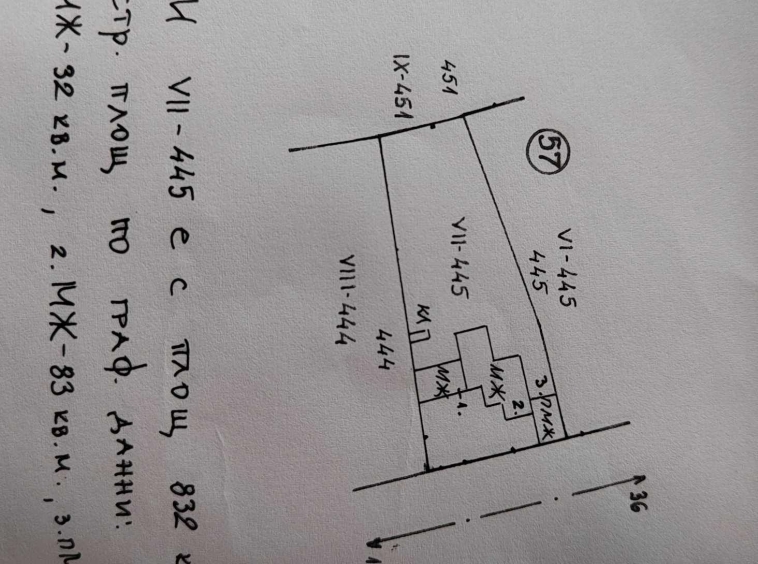 451
IX-451
57
VI-445
445
VII-445
VIII-444
444
КП
МЖ
1.
МЖ
2.
3.ПМЖ
36
И VII-445 е с площ 832 к
стр. площ по граф. данни:
МЖ-32 кв.м., 2.МЖ-83 кв.м., 3.ПМ